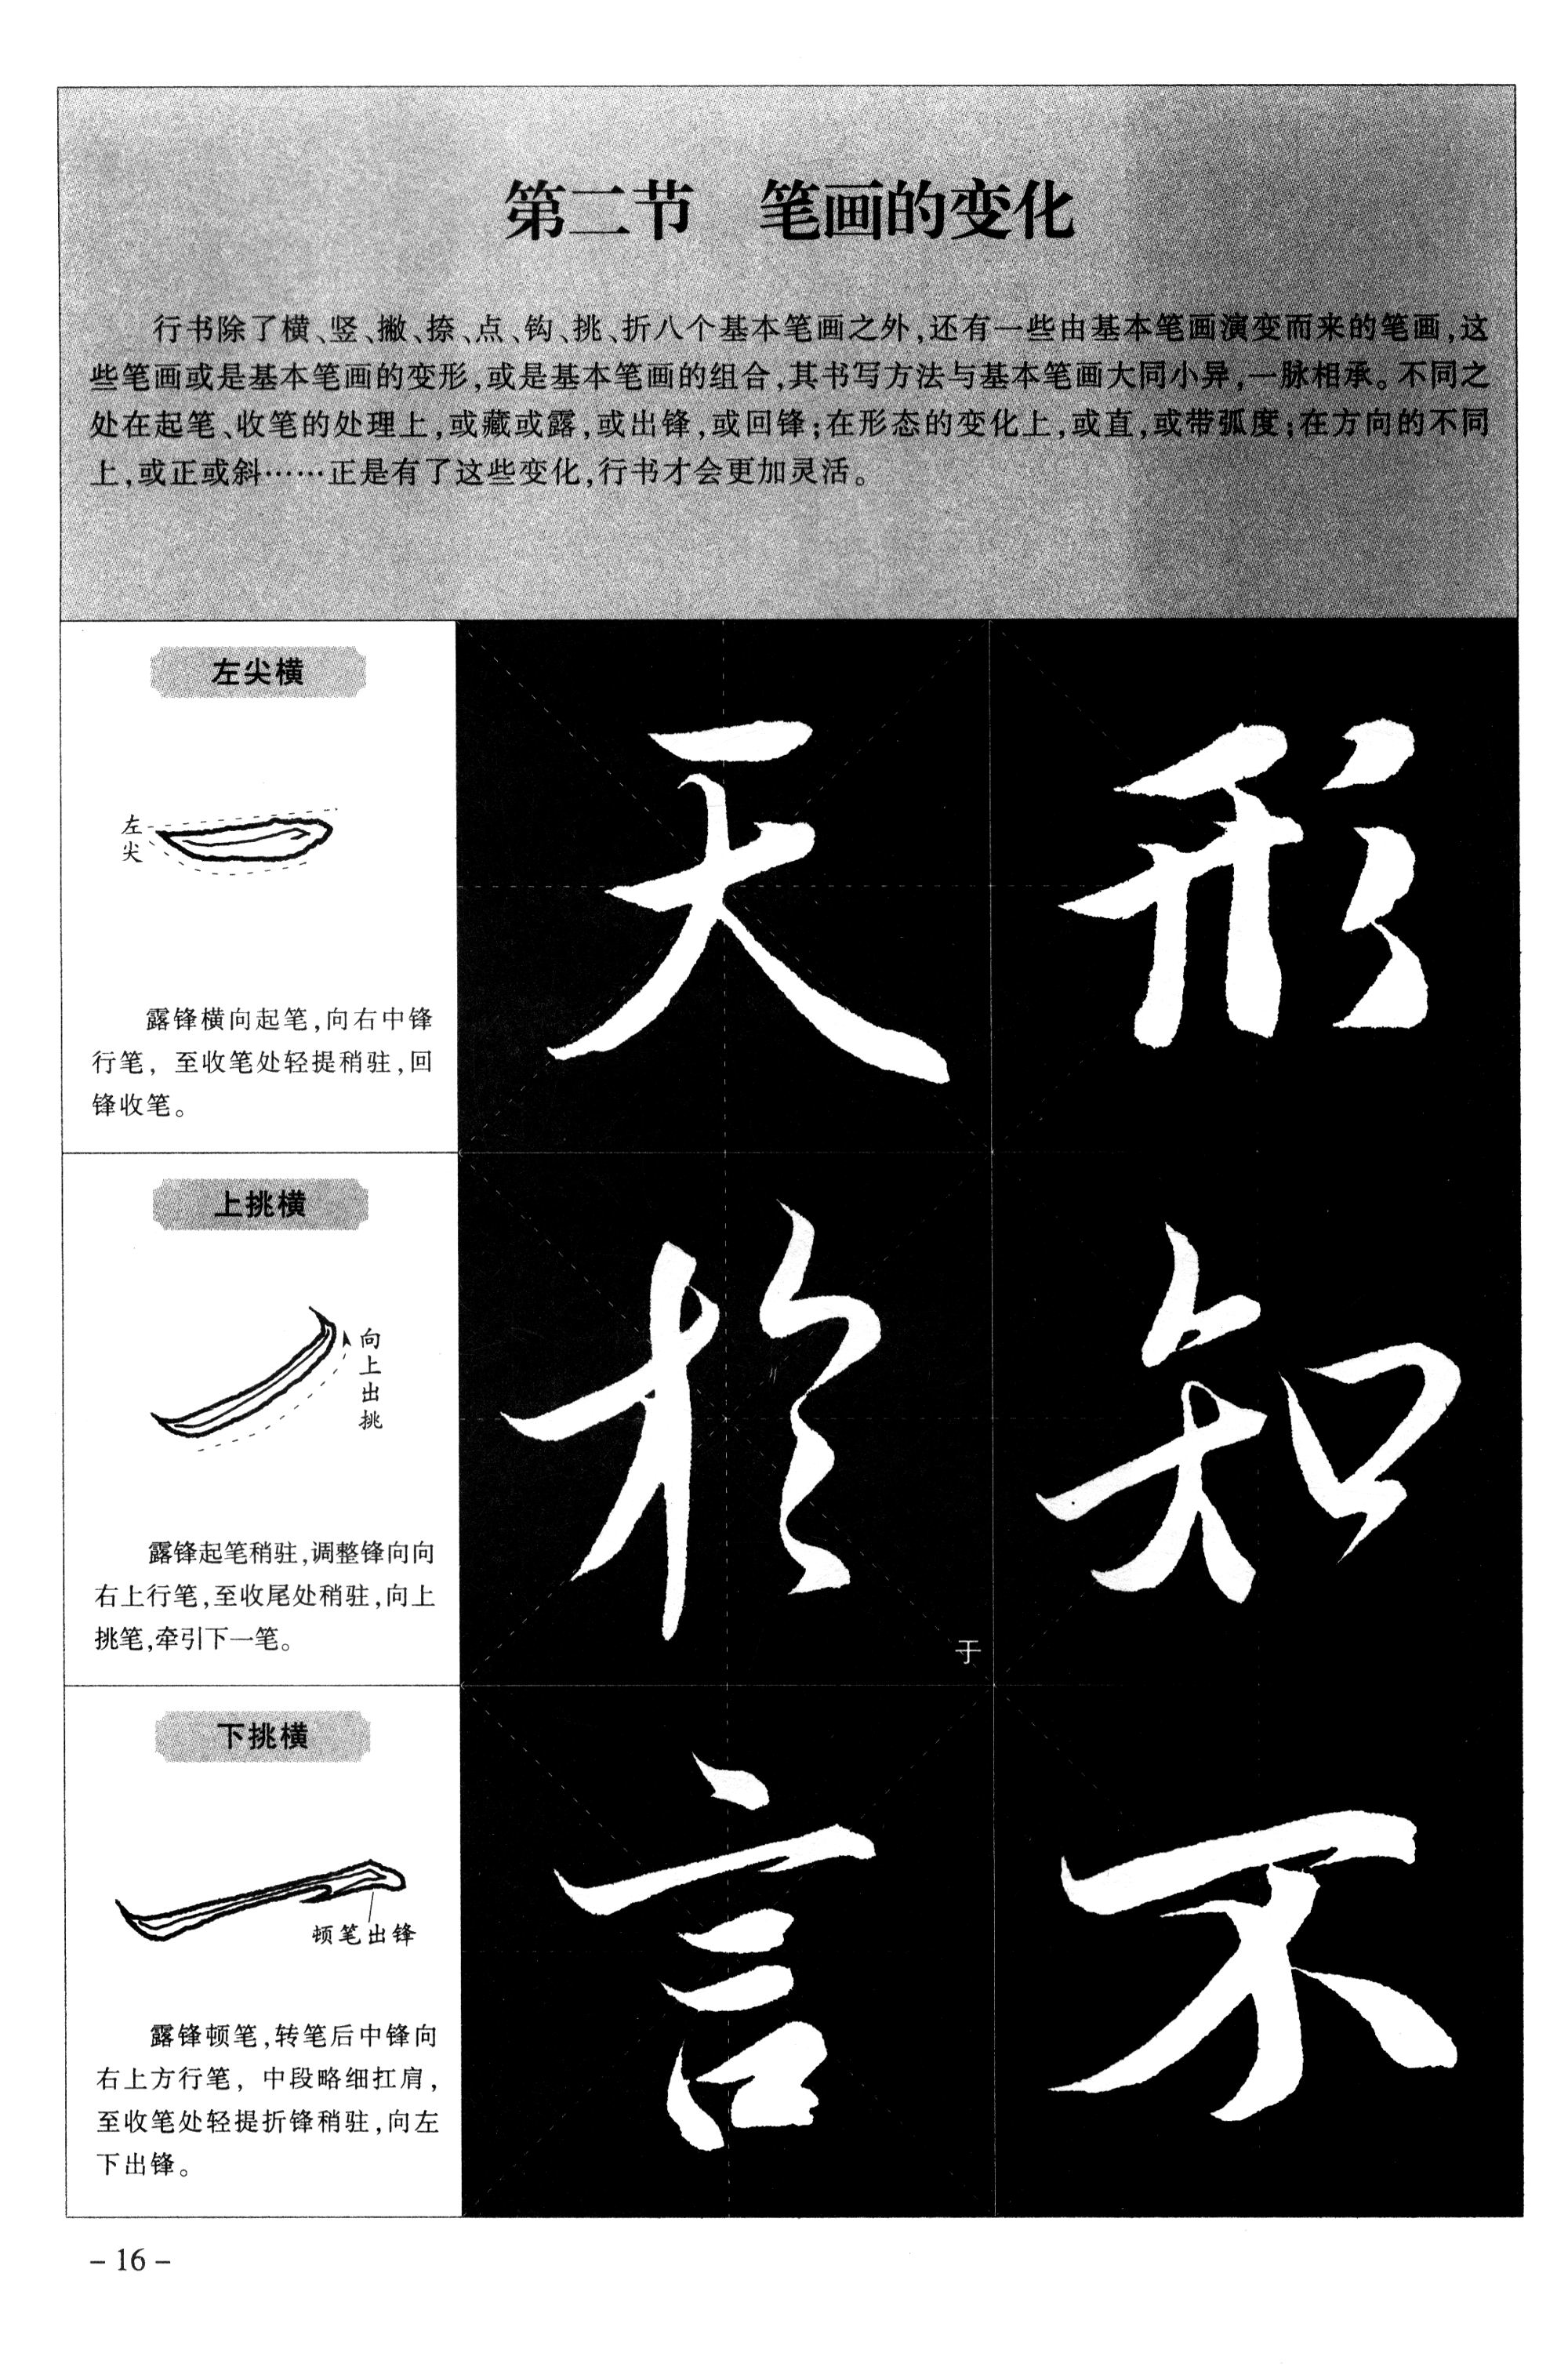 第二节 笔画的变化
行书除了横、竖、撇、捺、点、钩、挑、折八个基本笔画之外,还有一些由基本笔画演变而来的笔画,这
些笔画或是基本笔画的变形,或是基本笔画的组合,其书写方法与基本笔画大同小异,一脉相承。不同之
处在起笔、收笔的处理上,或藏或露,或出锋,或回锋;在形态的变化上,或直,或带弧度;在方向的不同
上,或正或斜……正是有了这些变化,行书才会更加灵活。
左尖横
左尖
露锋横向起笔,向右中锋
行笔, 至收笔处轻提稍驻,回
锋收笔。
天 形
上挑横
向上出挑
露锋起笔稍驻,调整锋向向
右上行笔,至收尾处稍驻,向上
挑笔,牵引下一笔。
於 知
于
下挑横
顿笔出锋
露锋顿笔,转笔后中锋向
右上方行笔, 中段略细扛肩,
至收笔处轻提折锋稍驻,向左
下出锋。
言 不
– 16 –